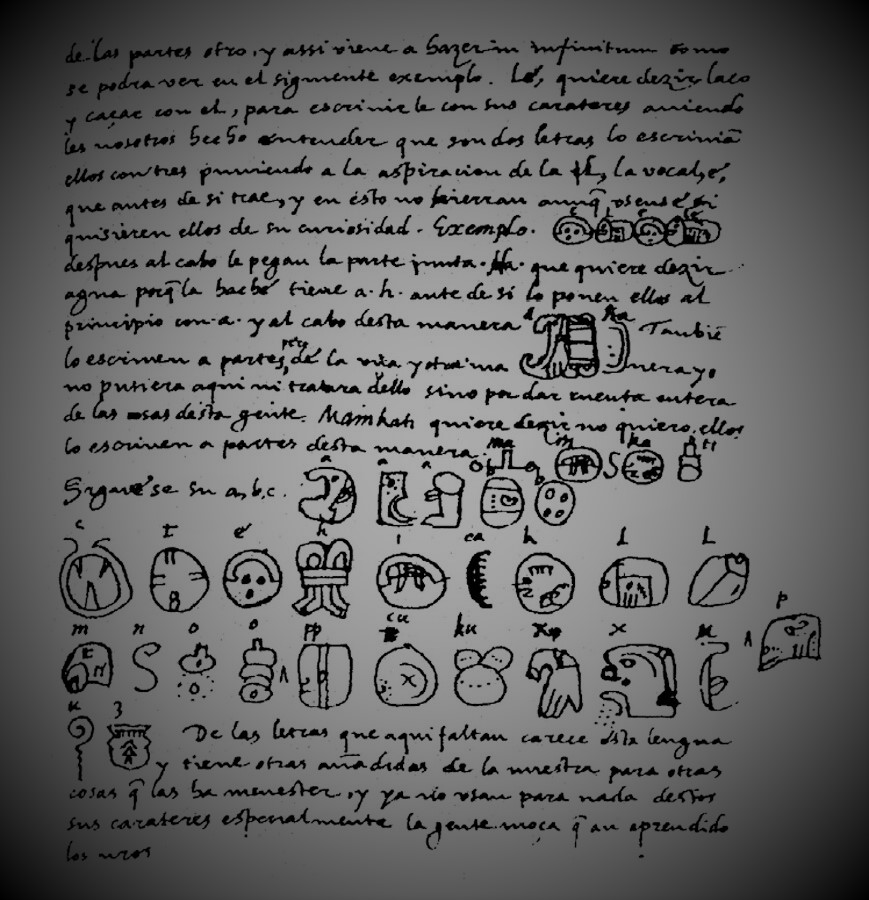 de las partes otro, y assi viene a hazer in infinitum como
se podra ver en el siguiente exemplo. Lé, quiere dezir laço
y caçar con el, para escrivirle con sus carateres aviendo
les nosotros hecho entender que son dos letras lo escrivian
ellos con tres puniendo a la aspiracion de la l, la vocal, é,
que antes de si trae, y en esto no hierran aunq̃ usense si
quisieren ellos de su curiosidad. Exemplo. e l e lé
despues al cabo le pegan la parte junta. Ha. que quiere dezir
agua porq̃ la haché tiene a.h. ante de si lo ponen ellos al
principio con a. y al cabo desta manera a ha Tanbiē
lo escriven a partes, pero de la una y otra ma nera yo
no pusiera aqui ni tratara dello sino por dar cuenta entera
de las cosas desta gente. Mainkati quiere dezir no quiero, ellos
lo escriven a partes desta manera. ma i n ka ti
Siguese su a, b, c. a a a b b
c t é h i ca k l l
m n o o pp cu ku x x u p
u z De las letras que aqui faltan carece esta lengua
y tiene otras añadidas de la nuestra para otras
cosas q̃ las ha menester, y ya no usan para nada destos
sus carateres especialmente la gente moça q̃ an aprendido
los nros